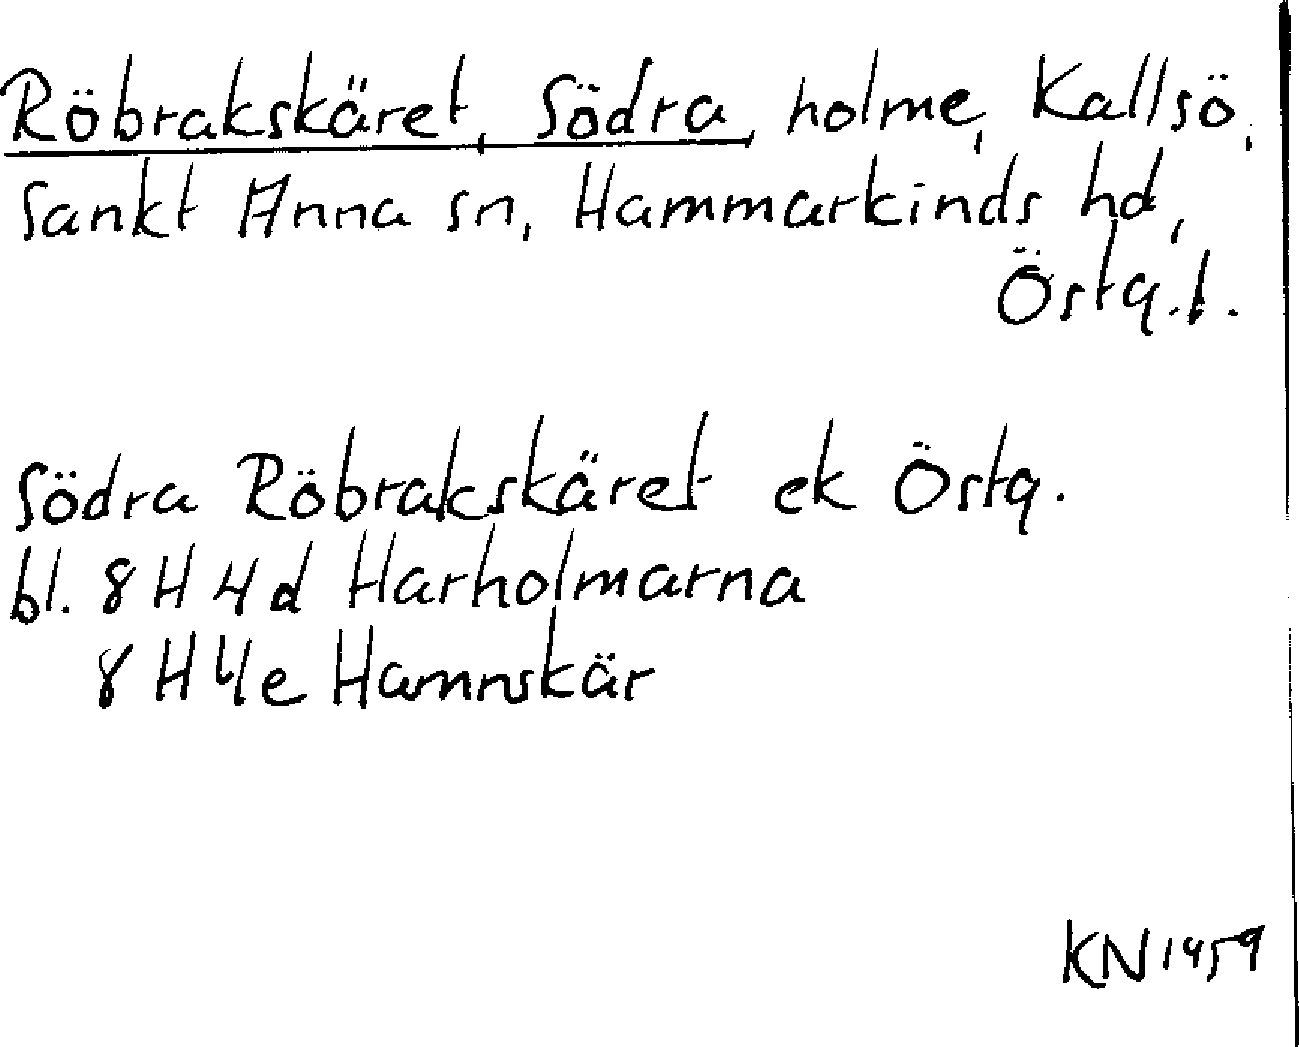 Röbrakskäret, Södra, holme, Kallsö,
Sankt Anna sn, Hammarkinds hd,
Östg.l.
Södra Röbrakskäret ek Östg.
bl. 8 H 4d Harholmarna
8 H 4e Hamnskär
KN 1959